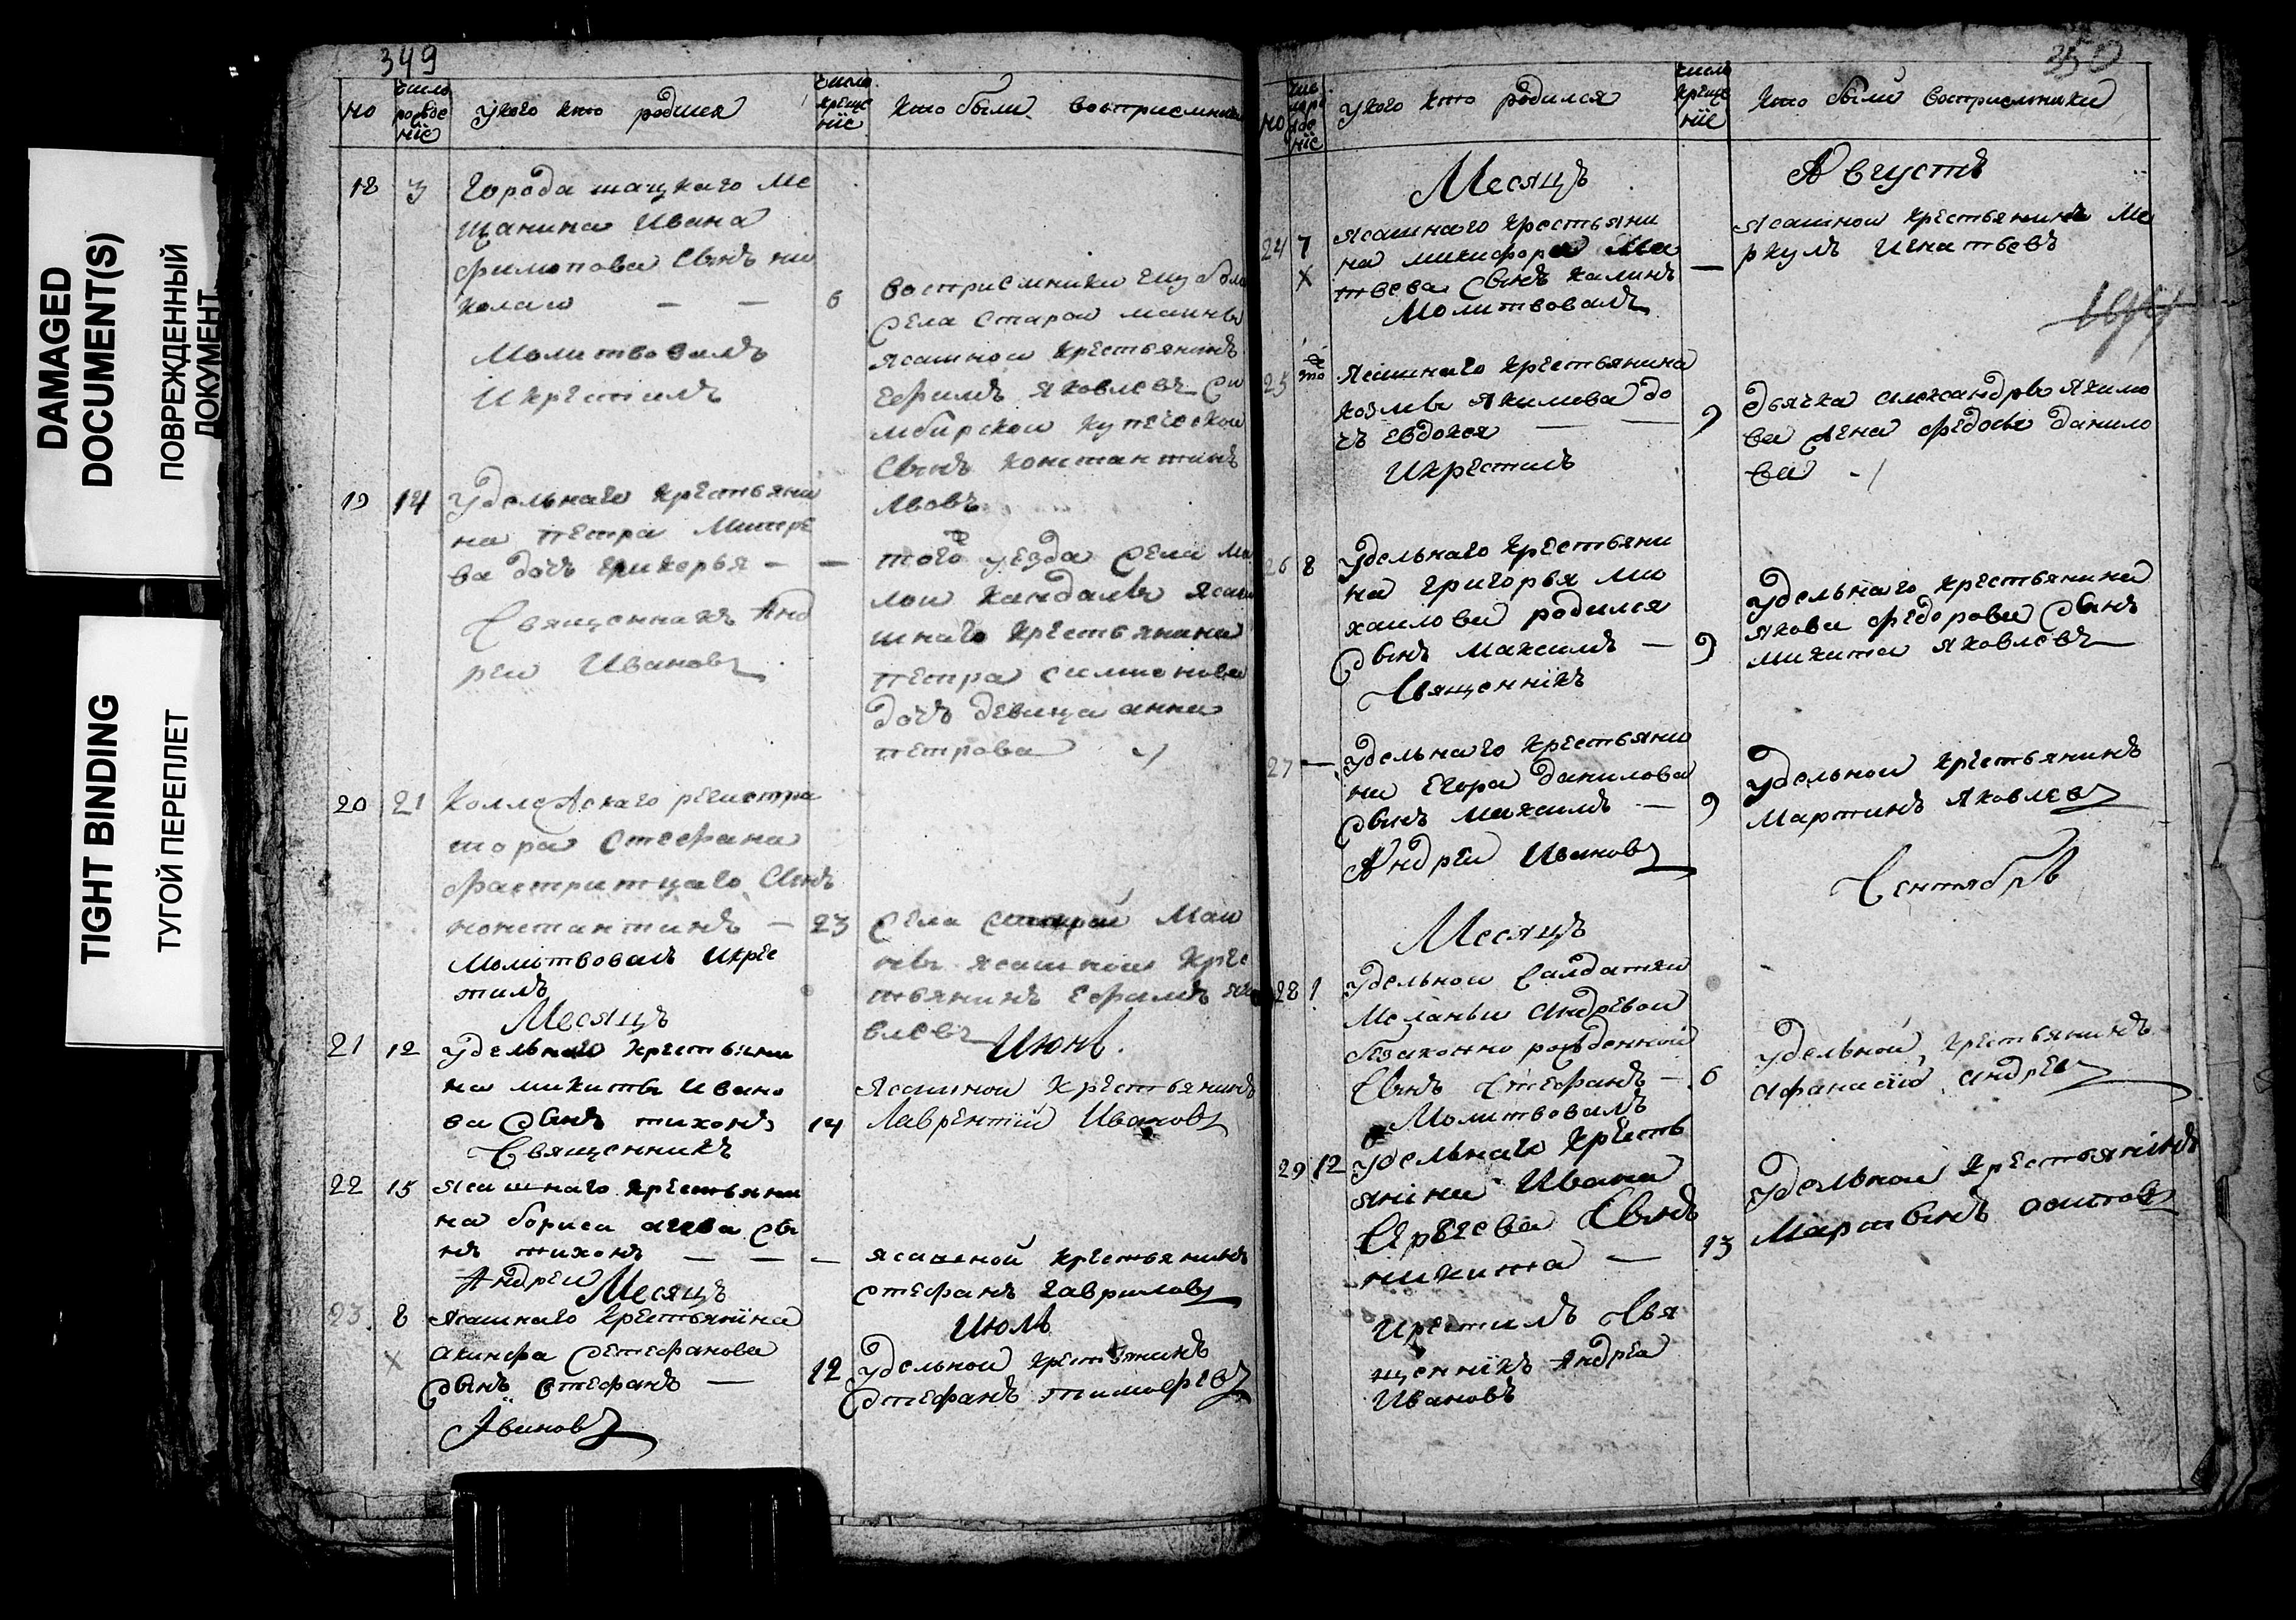 DAMAGED
DOCUMENT(S)
ПОВРЕЖДЕННЫЙ
ДОКУМЕНТ
TIGHT BINDING
ТУГОЙ ПЕРЕПЛЕТ
349
но
число рожде нiе
у кого кто родился
число креще нiе
кто были восприемники
18 3 Города шацкаго ме
щанина Ивана
филипова сынъ ни
колаи — — 6
Молитвовалъ
и крестилъ
восприемники
села старои маины
ясашнои крестьянинъ
Ефримъ Яковлевъ си
мбирскои купеческои
сынъ константинъ
львовъ
19 14 удельнаго крестьяни
на петра Митре
ва дочъ гликерья — —
Священникъ Анд
реи Ивановъ
того уезда села ма
лои кандалы ясаш
шнаго крестьянина
петра симионова
дочъ девица анна
петрова
20 21 Коллежскаго регистра
тора Стефана
сынъ
константинъ — 23
Молитвовалъ и крес
тилъ
села старой Маи
ны ясашнои крес
тьянинъ Ефримъ яко
влевъ
Месяцъ Июнь
21 12 удельнаго крестьяни
на микиты Ивано
ва сынъ тихонъ 14
Священникъ
Ясашнои крестьянинъ
Лаврентiй Ивановъ
22 15 ясашнаго крестьяни
на бориса агева сы
нъ тихонъ — — —
Андреи
ясашной крестьянинъ
стефанъ гавриловъ
Месяцъ Июль
23 8 Ясашнаго крестьянiна
акинфа Стефанова
сынъ стефанъ — 12
Ивановъ
удельнои крестьянинъ
стефанъ тимофеевъ
350
но
число рожде нiе
у кого кто родился
число креще нiе
кто были восприемники
Месяцъ Августъ
24 7 ясашнаго крестьяни
на микифора Ма
твева сынъ калинъ —
Молитвовалъ
Ясашнои крестьянинъ Ме
ркулъ Игнатьевъ
25 то же Ясашнаго крестьянина
козмы якимова до
чъ евдокея — — 9
и крестилъ
дьячка александры якимо
ва жена федосья данило
ва
26 8 удельнаго крестьяни
на григорья ми
хаилова родился
сынъ максимъ — 9
Священнiкъ
удельнаго крестьянина
якова федорова сынъ
микита яковлевъ
27 — удельнаго крестьяни
на Егора данилова
сынъ максимъ — 9
Андреи Ивановъ
удельнои крестьянинъ
Мартинъ яковлевъ
Месяцъ Сентябрь
28 1 удельнои салдатки
Меланьи Андревои
безаконно рожденной
сынъ Стефанъ — 6
Молитвовалъ
удельной крестьянинъ
афанасiй андревъ
29 12 удельнаго кресть
янiна Ивана
Сергеева сынъ
никита — 13
и крестилъ свя
щеннiкъ Андреа
Ивановъ
удельнои крестьянiнъ
Мартынъ осиповъ